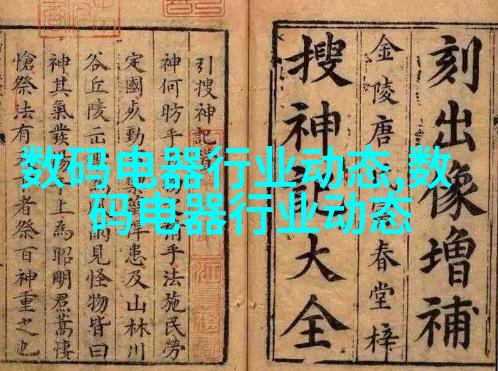 数码电器行业动态,数
码电器行业动态
刻出像增補
金陵唐春堂梓
搜神記大全
引搜神記
神何昉乎手法施民勞
定國以勤患及山林川
谷丘陵見怪物皆曰
神其氣發揚上為昭明焄蒿悽
愴祭法有者祭百神重之也